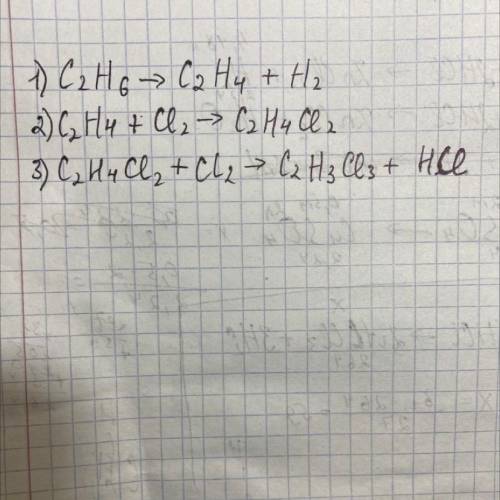 1) C₂H₆ → C₂H₄ + H₂
2) C₂H₄ + Cl₂ → C₂H₄Cl₂
3) C₂H₄Cl₂ + Cl₂ → C₂H₃Cl₃ + HCl